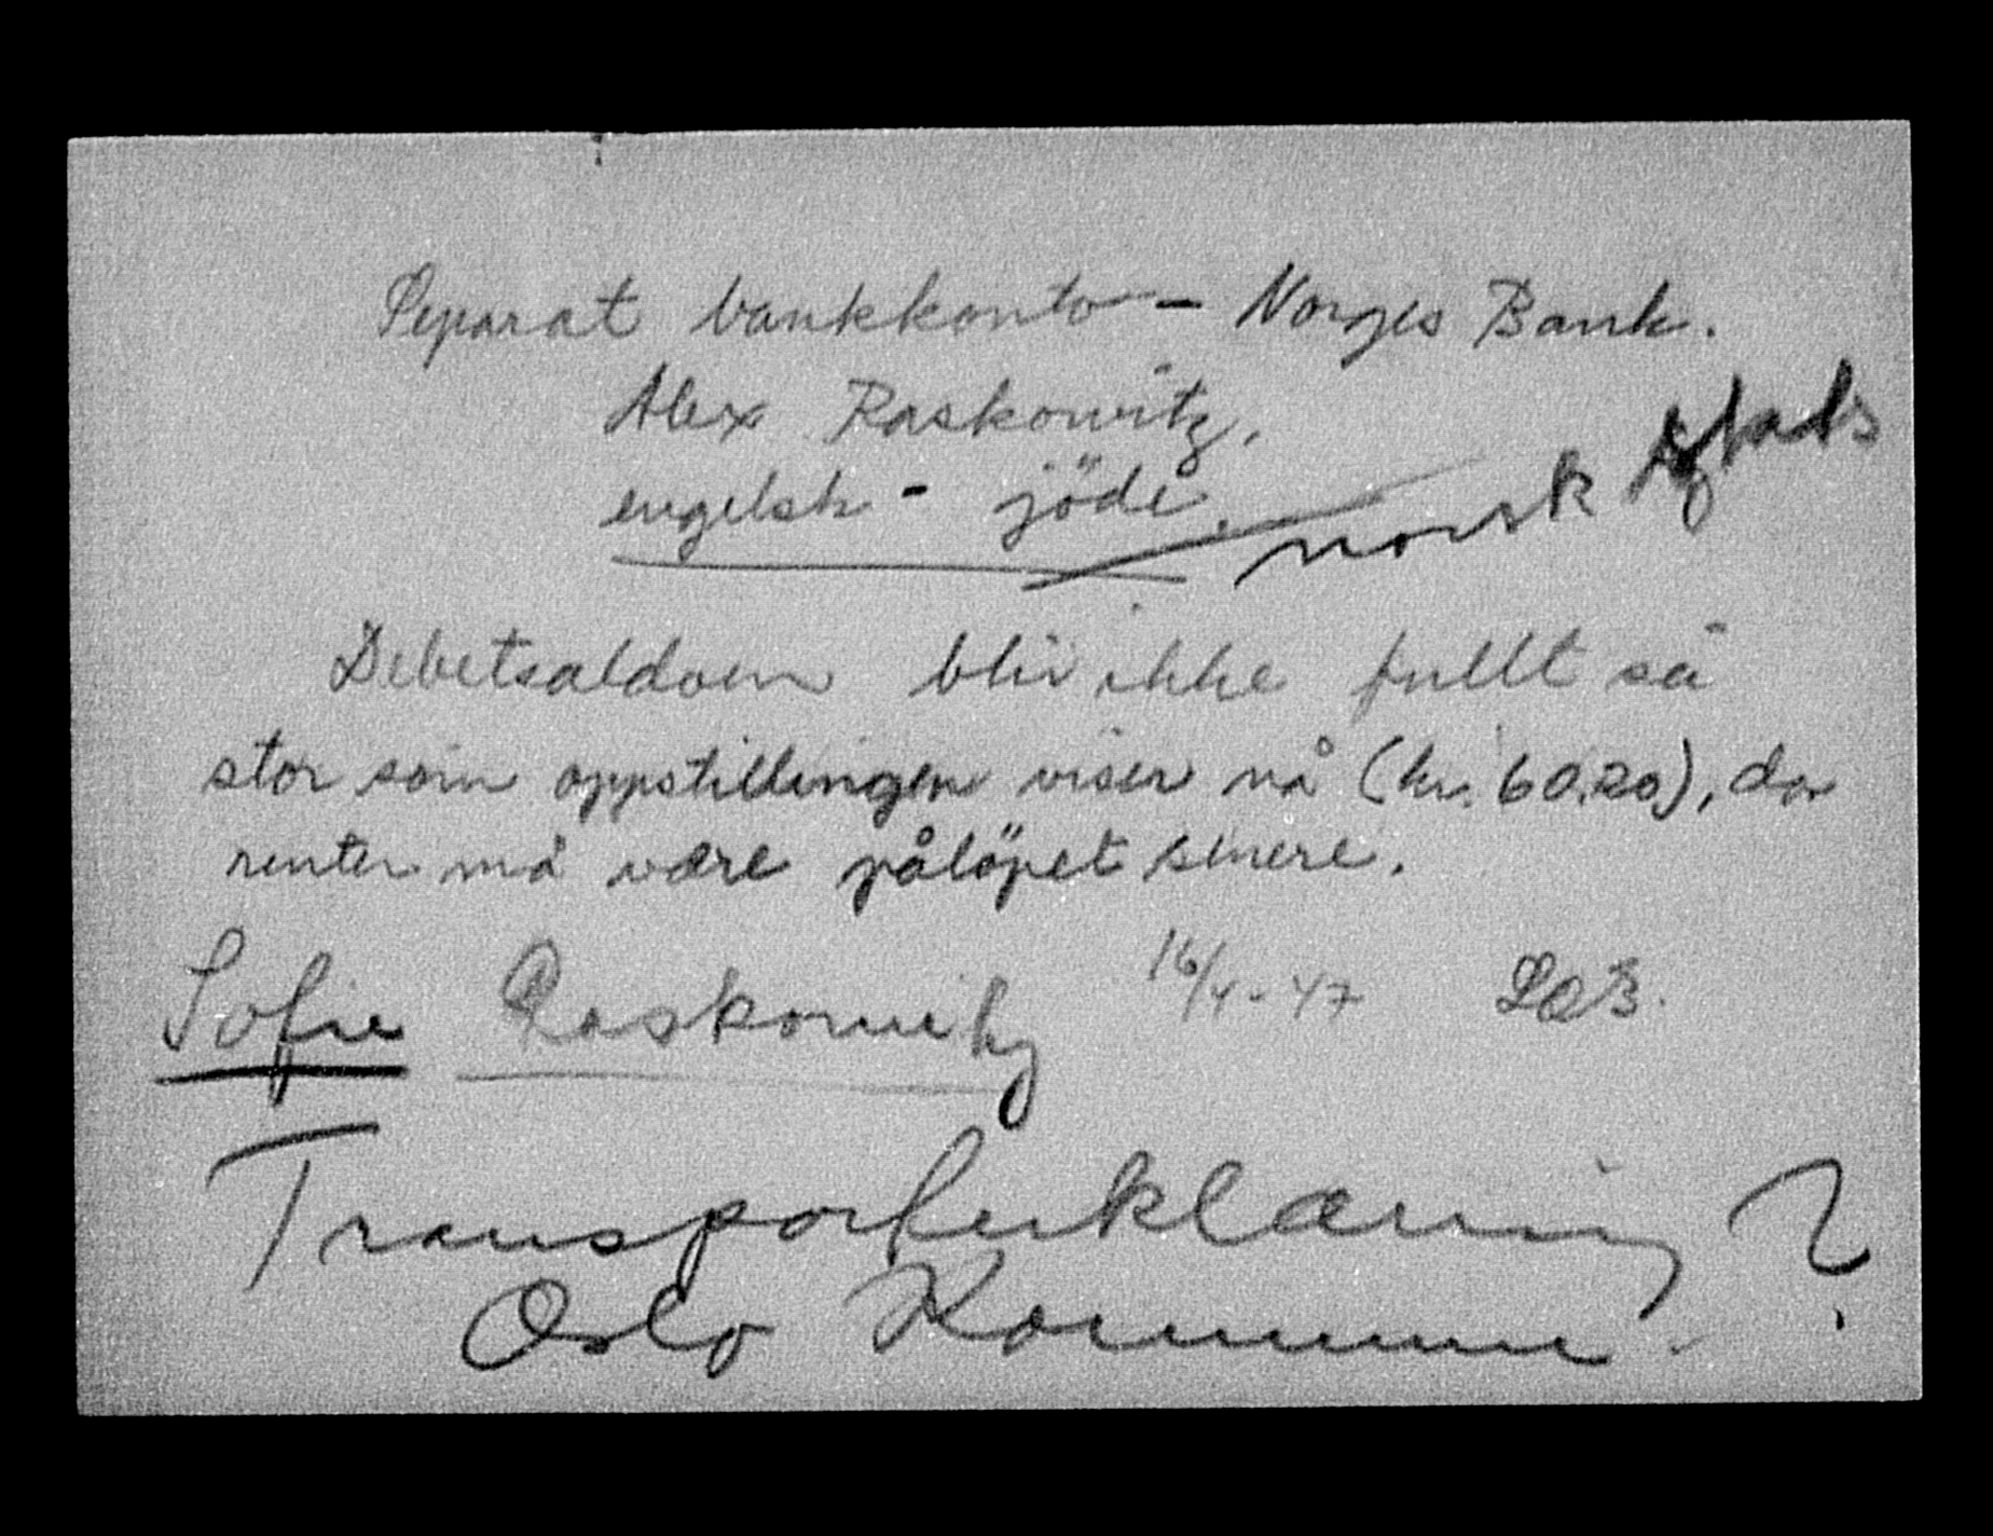 Separat bankkonto - Norges Bank.
Alex Raskowitz.
engelsk - jöde. norsk
Debetsaldoen blir ikke fullt så
stor som oppstillingen viser nå (kr. 60.20), da
renter må være påløpet senere.
Sofie Raskowitz 16/4-47
Transporterklæring ?
Oslo Kommune.